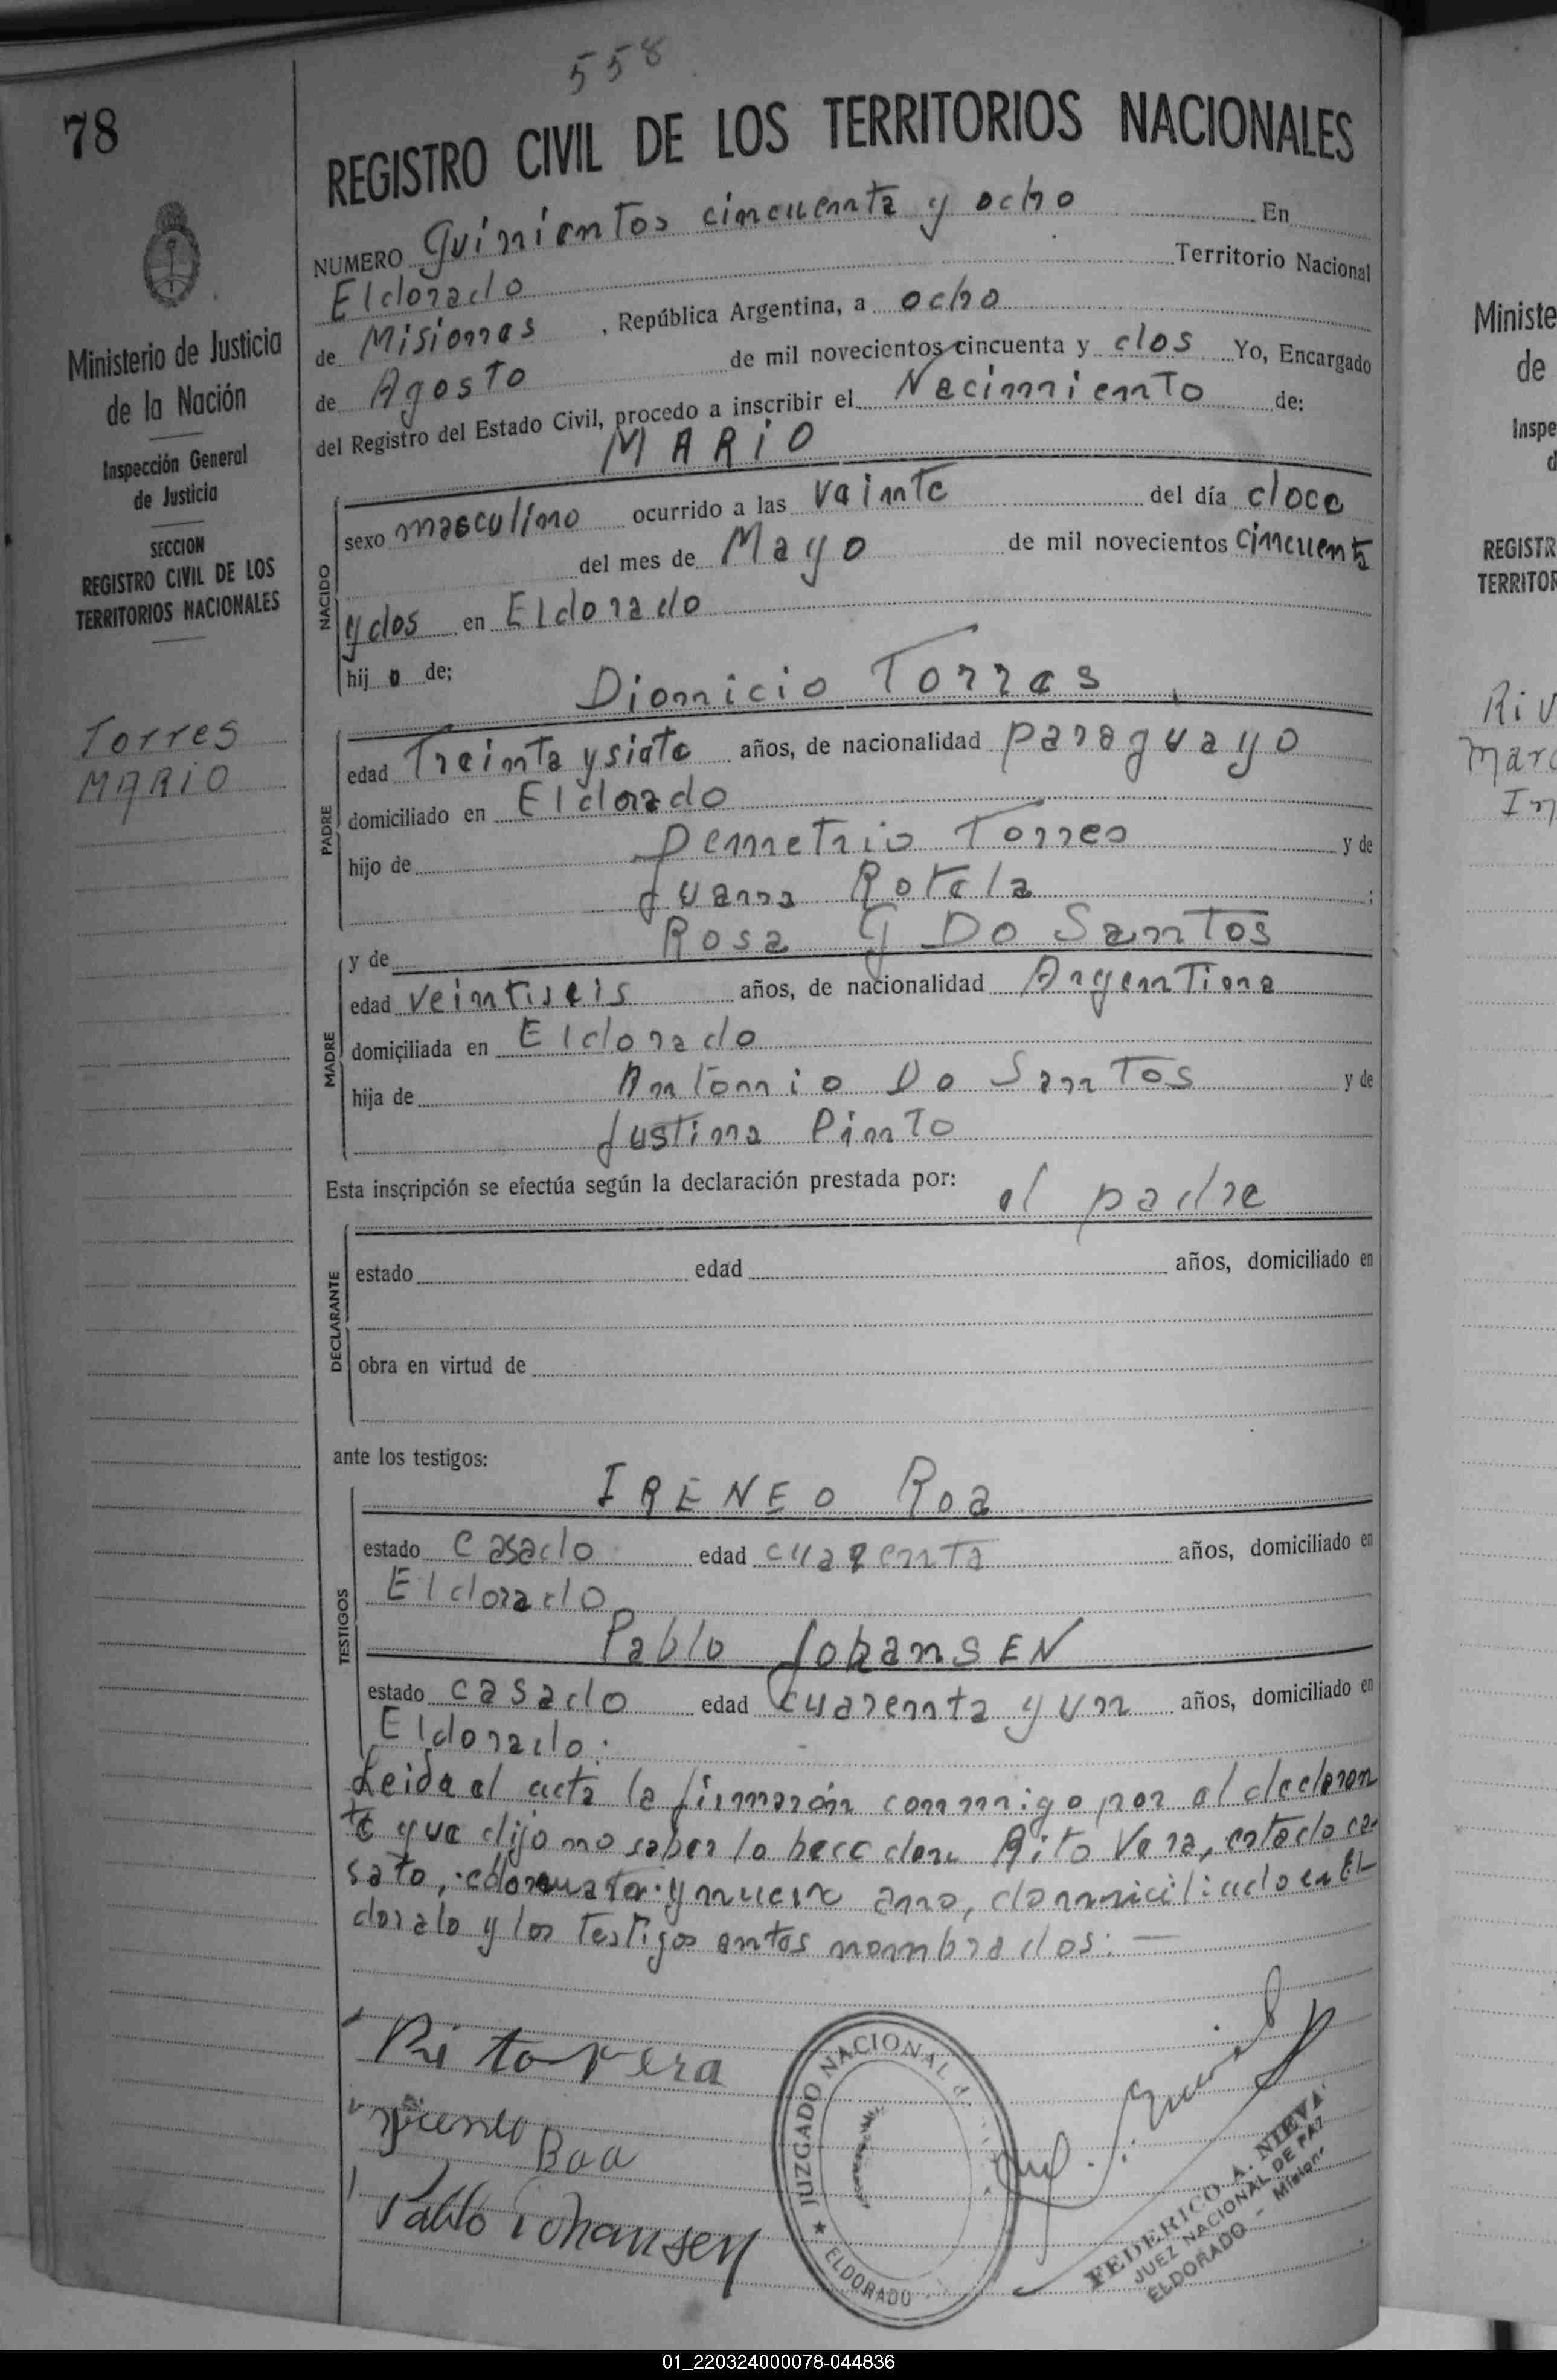 558
78
REGISTRO CIVIL DE LOS TERRITORIOS NACIONALES
NUMERO Quinientos cincuenta y ocho En
Eldorado Territorio Nacional
de Misiones, República Argentina, a ocho
de Agosto de mil novecientos cincuenta y dos Yo, Encargado
del Registro del Estado Civil, procedo a inscribir el Nacimiento de:
MARIO
NACIDO
sexo masculino ocurrido a las vainte del día doce
del mes de Mayo de mil novecientos cincuenta
y dos en Eldorado
hijo de;
Dionicio Torres
PADRE
edad Treinta y siete años, de nacionalidad paraguayo
domiciliado en Eldorado
hijo de Demetrio Torres y de
Juana Rotela;
y de Rosa G Do Santos
MADRE
edad veintiseis años, de nacionalidad Argentina
domiciliada en Eldorado
hija de Antonio Do Santos y de
Justina Pinto
Esta inscripción se efectúa según la declaración prestada por: el padre
DECLARANTE
estado edad años, domiciliado en
obra en virtud de
ante los testigos:
IRENEO Roa
TESTIGOS
estado casado edad cuarenta años, domiciliado en
Eldorado
Pablo JohansEN
estado casado edad cuarenta y un años, domiciliado en
Eldorado.
Leida el acta la firmarón conmigo por el declaran
te que dijo no saber lo hace don Rito Vera, estado ca-
sato, y nueve ano, domiciliado en El-
doralo y los testigos antes nombrados: —
Rito Vera
Roa
Pablo Johansen
JUZGADO NACIONAL
★ ELDORADO
FEDERICO A. NIEVA
JUEZ NACIONAL DE PAZ
ELDORADO - Mision
Ministerio de Justicia
de la Nación
Inspección General
de Justicia
SECCION
REGISTRO CIVIL DE LOS
TERRITORIOS NACIONALES
Torres
MARIO
Ministe
de
Inspe
d
REGISTR
TERRITOR
Riv
Marc
01_220324000078-044836